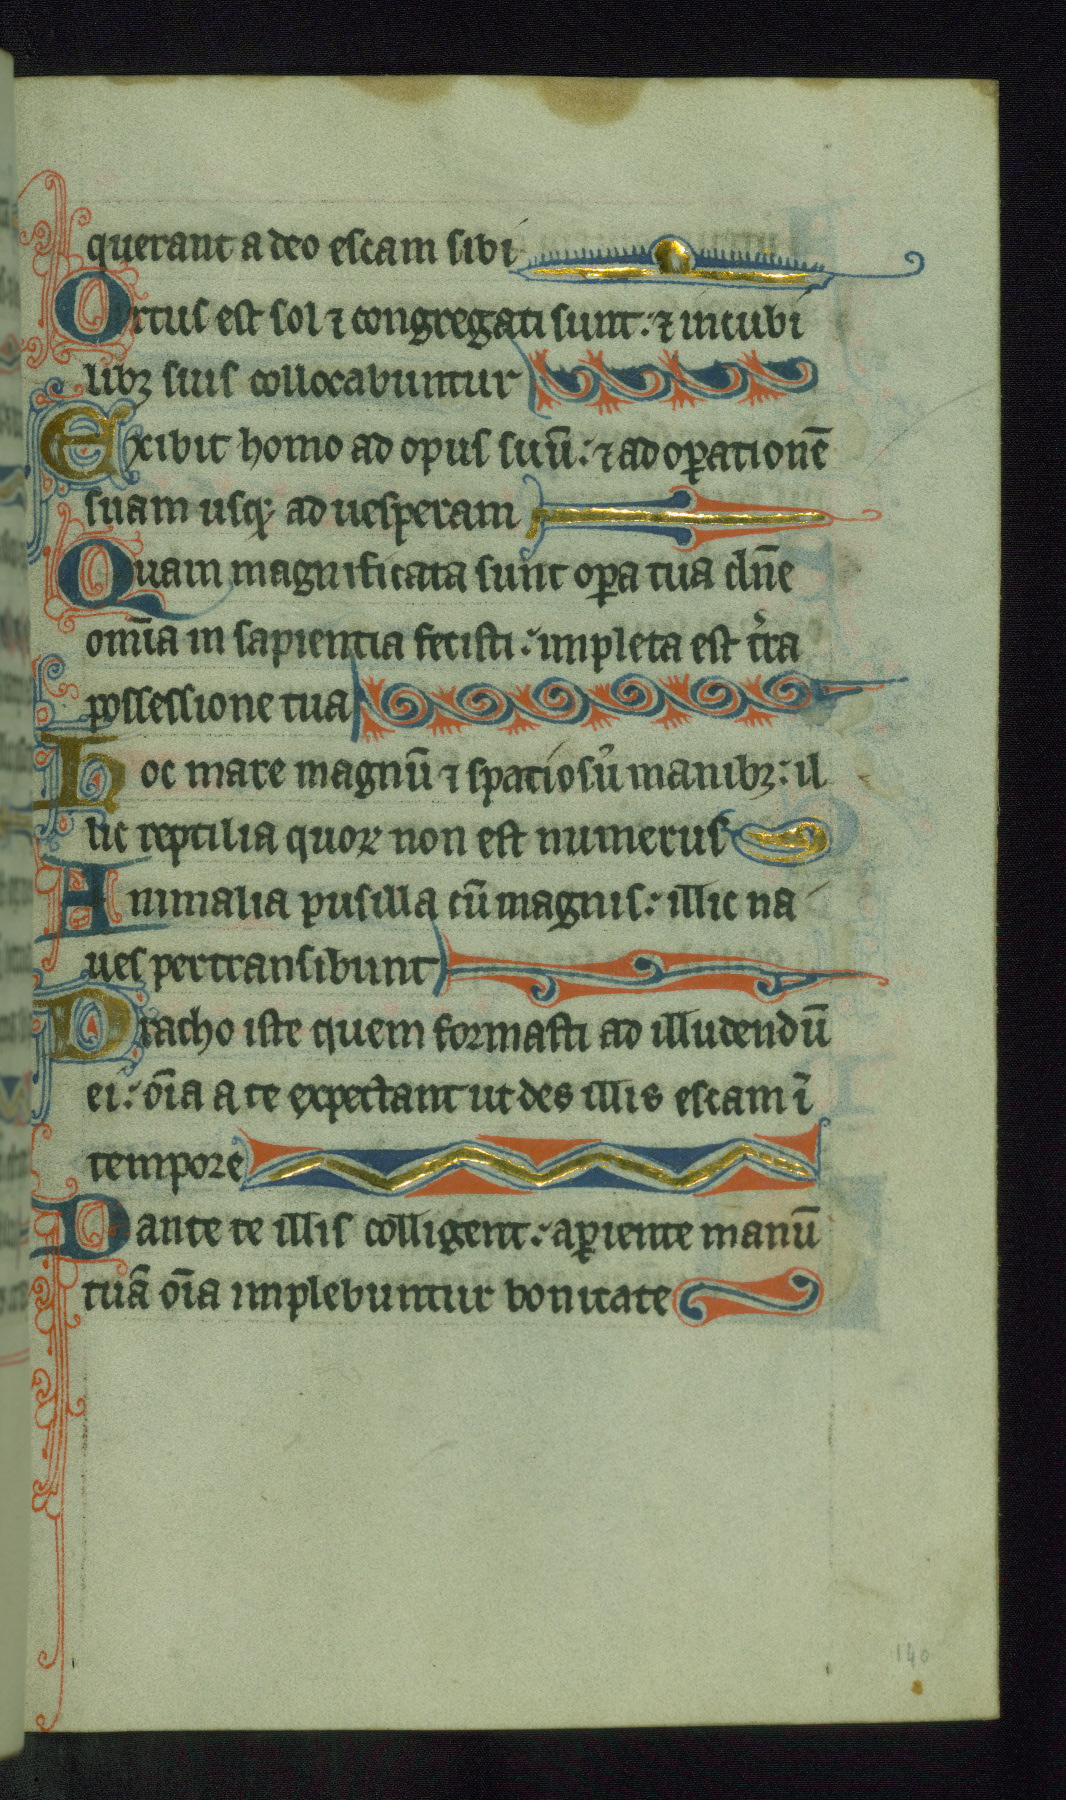 querant a deo escam sibi
Ortus est sol ⁊ congregati sunt: ⁊ in cubi
libꝫ suis collocabuntur
Exibit homo ad opus suū: ⁊ ad oꝑationē
suam usqꝫ ad uesperam
Quam magnificata sunt oꝑa tua dn̄e
om̄ia in sapientia fecisti: impleta est t̾ra
possessione tua
Hoc mare magnū ⁊ spatiosū manibꝫ: il
lic reptilia quoꝝ non est numerus
Animalia pusilla cū magnis: illic na
ues pertransibunt
Dracho iste quem formasti ad illudendū
ei: oīa a te expectant ut des illis escam ī
tempore
Dante te illis colligent: aꝑiente manū
tuā oīa implebuntur bonitate
140